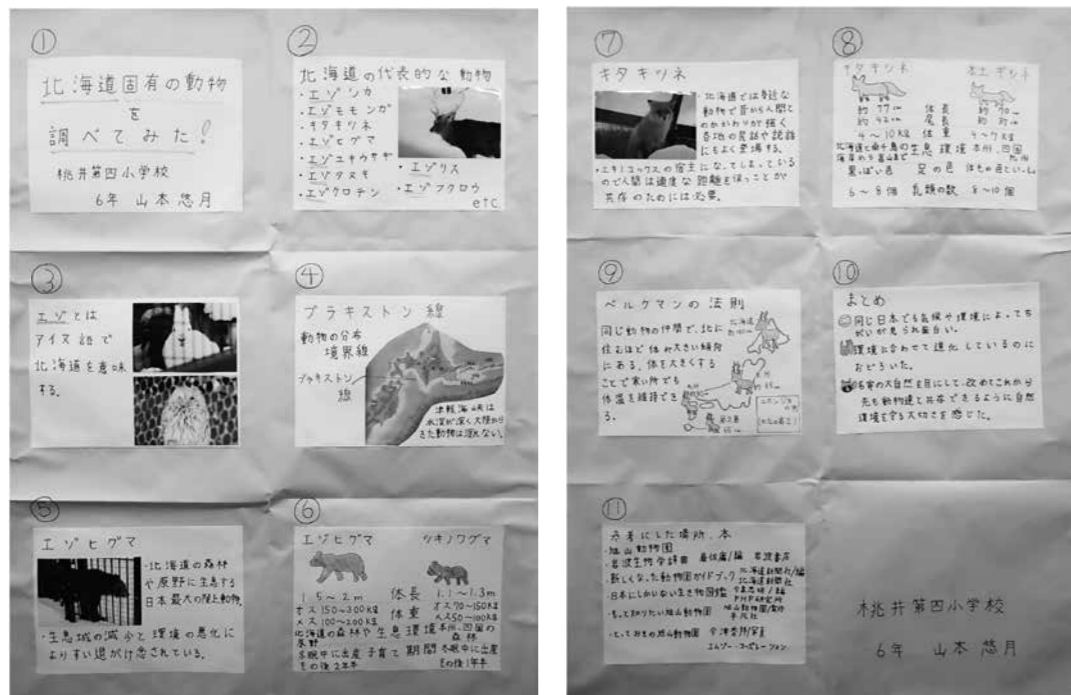 ①
北海道固有の動物
を
調べてみた!
桃井第四小学校
6年 山本悠月
②
北海道の代表的な動物
・エゾシカ
・エゾモモンガ
・キタキツネ
・エゾヒグマ
・エゾユキウサギ
・エゾタヌキ
・エゾクロテン
・エゾリス
・エゾフクロウ
etc
③
エゾとは
アイヌ語で
北海道を意味
する。
④
ブラキストン線
動物の分布
境界線
ブラキストン
線
津軽海峡は
水深が深く大陸から
きた動物は渡れない。
⑤
エゾヒグマ
・北海道の森林
や原野に生息する
日本最大の陸上動物。
・生息域の減少と環境の悪化に
よりすい退がけ念されている。
⑥
エゾヒグマ ツキノワグマ
1.5~2m 体長 1.1~1.3m
オス150~300kg 体重 オス70~150kg
メス100~200kg メス50~100kg
北海道の森林や 生息環境 本州、四国の
原野 森林
冬眠中に出産 子育て期間 冬眠中に出産
その後2年半 その後1年半
⑦
キタキツネ
・北海道では身近な
動物で昔から人間と
のかかわりが強く
各地の昔話や説話
にもよく登場する。
・エキノコックスの宿主になってしまっている
ので人間は適度な距離を保つことが
共存のためには必要。
⑧
キタキツネ 本土ギツネ
約77cm 体長 約70cm
約42cm 尾長 約37cm
4~10kg 体重 4~7kg
生息環境 本州、四国
九州
黒っぽい色 足の色
6~8個 乳頭の数 8~10個
⑨
ベルクマンの法則
同じ動物の仲間で、北に
住むほど体が大きい傾向
にある。体を大きくする
ことで寒い所でも
体温を維持でき
る。
北海道
本州
⑩
まとめ
同じ日本でも気候や環境によってち
がいが見られ面白い。
環境に合わせて進化しているのに
おどろいた。
大自然を目にして、改めてこれから
先も動物達と共存できるように自然
環境を守る大切さを感じた。
⑪
参考にした場所、本
・旭山動物園
・岩波生物学辞典 岩波書店
・新しくなった動物園ガイドブック 北海道新聞社/編
北海道新聞社
・日本にしかいない生き物図鑑
PHP研究所
・もっと知りたい旭山動物園
・とっておきの旭山動物園 今津秀邦/写真
エムジー・コーポレーション
桃井第四小学校
6年 山本悠月